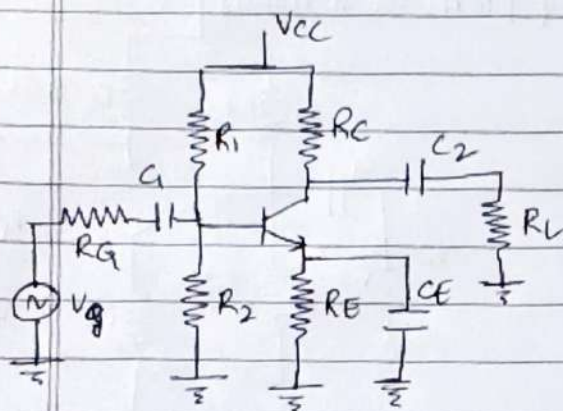 VCC
R1
RC
C2
C1
RL
RG
Vg
R2
RE
CE